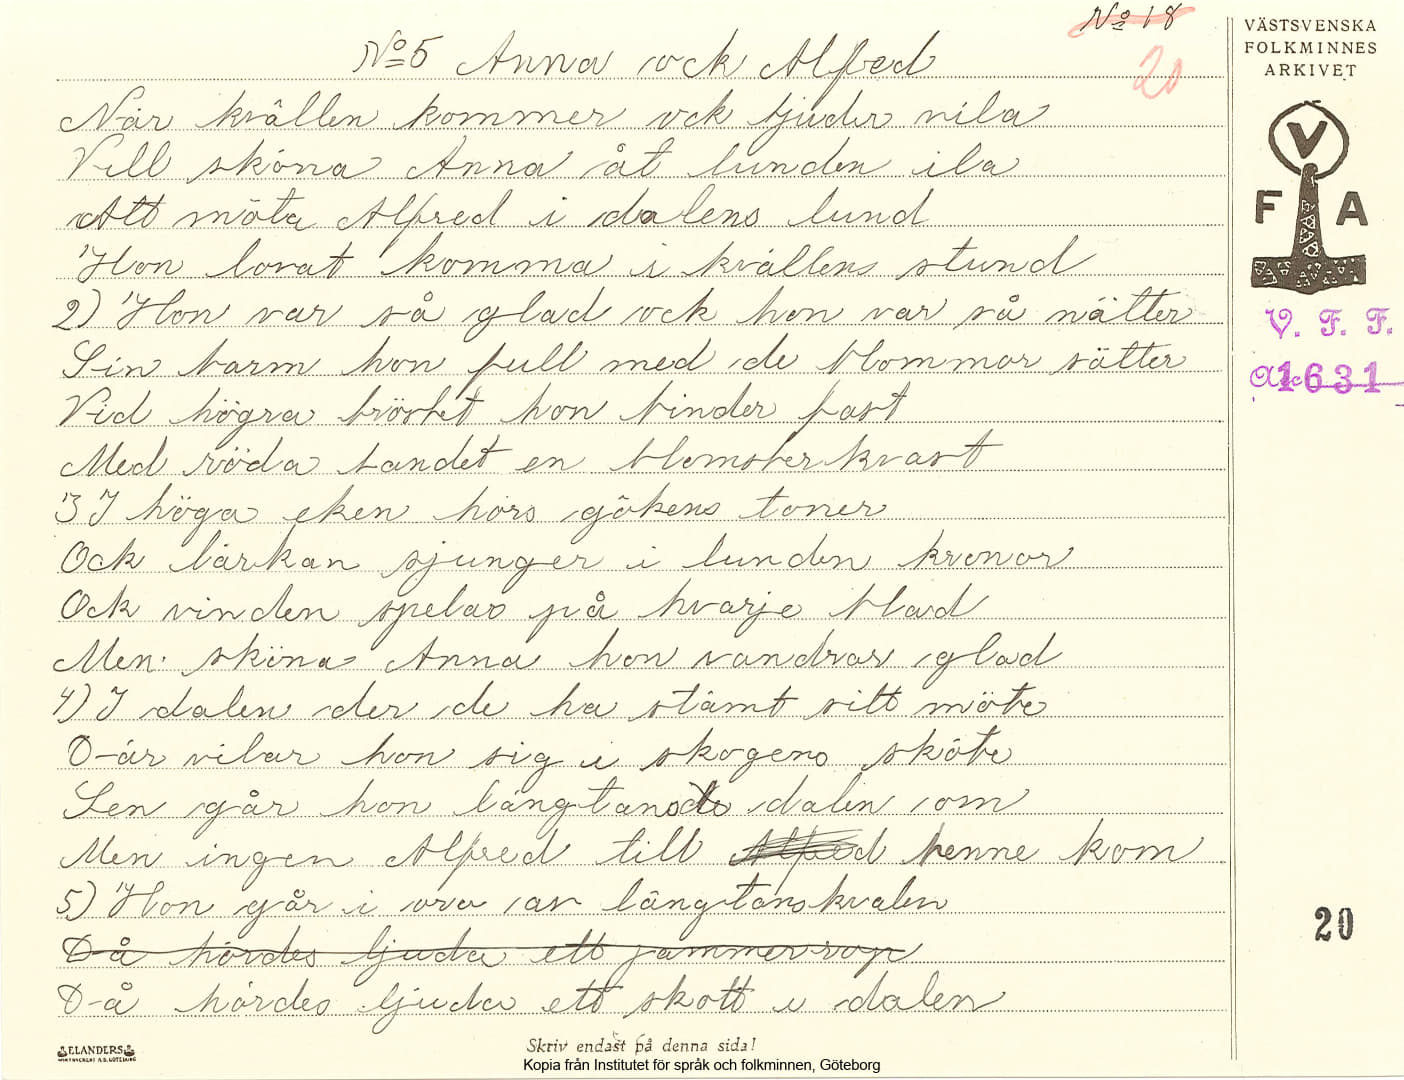 No 18
20
No 5 Anna ock Alfred
När kvällen kommer ock bjuder vila
Vill sköna Anna åt lunden ila
Att möta Alfred i dalens lund
Hon lovat komma i kvällens stund
2) Hon var så glad ock hon var så nätter
Sin barm hon full med de blommor sätter
Vid högra bröstet hon binder fast
Med röda bandet en blomsterkvast
3 I höga eken hörs gökens toner
Ock lärkan sjunger i lunden kronor
Ock vinden spelas på hvarje blad
Men sköna Anna hon vandrar glad
4) I dalen der de ha stämt sitt möte
Där vilar hon sig i skogens sköte
Sen går hon längtande dalen om
Men ingen Alfred till Alfred henne kom
5) Hon går i oro av längtanskvalen
Då hördes ljuda ett jammerrop
Då hördes ljuda ett skott i dalen
VÄSTSVENSKA
FOLKMINNES
ARKIVET
V
F A
V. F. F.
1631
20
ELANDERS
Skriv endast på denna sida!
Kopia från Institutet för språk och folkminnen, Göteborg